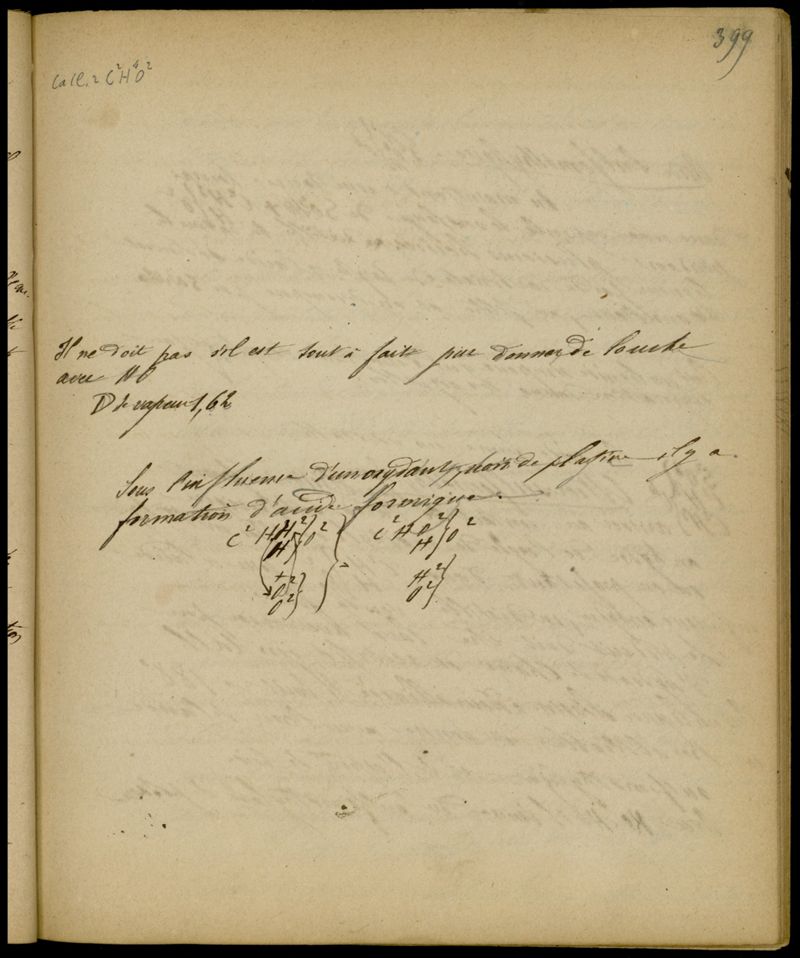 399
CaCl, 2 C²H⁴O²
Il ne doit pas s'il est tout à fait pur donner de louche
avec HO
D de vapeur 1,62
Sous l'influence d'un oxydant, noir de platine il y a
formation d'acide formique.
C² H H² } O² } = C² H O² } O²
H } H }
+ H² }
O² } O² }
O² }